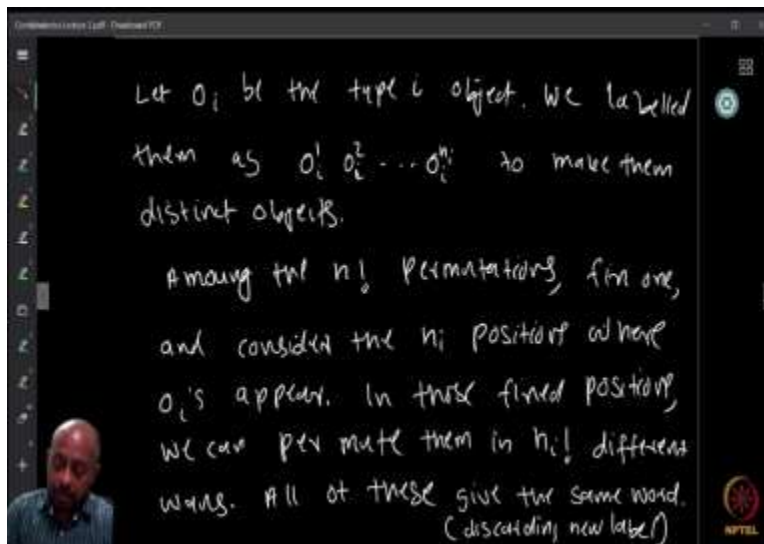 Combinatorics Lecture 2.pdf - Download PDF
Let O_i be the type i object. We labelled
them as O_i^1 O_i^2 ... O_i^{n_i} to make them
distinct objects.
Among the n! permutations, fix one,
and consider the n_i positions where
O_i's appear. In those fixed positions,
we can permute them in n_i! different
ways. All of these give the same word.
(discarding new label)
NPTEL